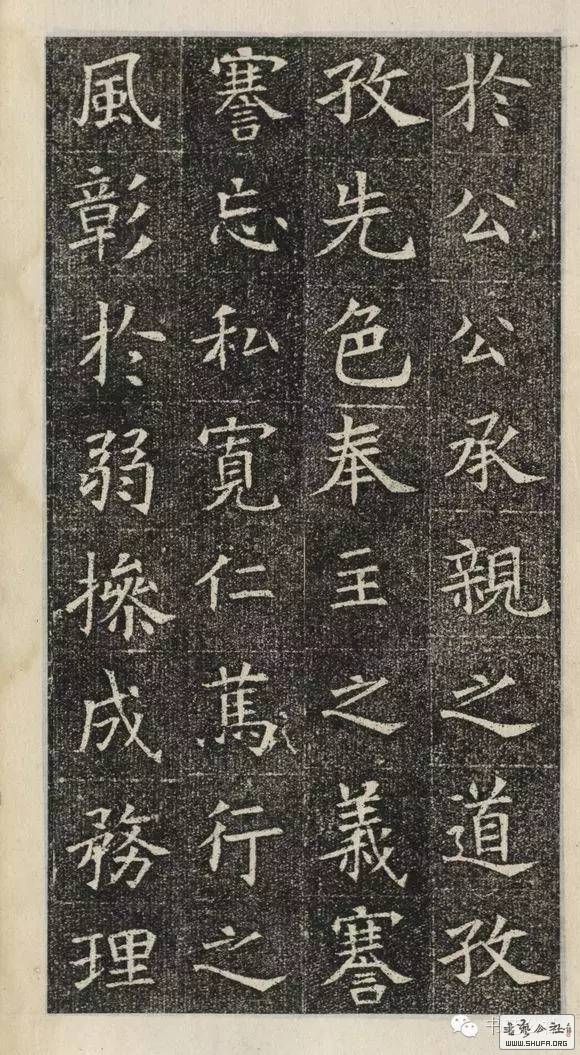 於公公承親之道孜
孜先色奉主之義謇
謇忘私寬仁篤行之
風彰於弱操成務理
書藝公社
WWW.SHUFA.ORG